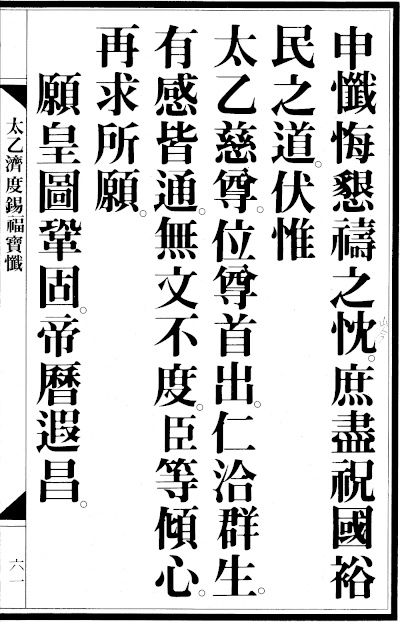 申懺悔懇禱之忱。庶盡祝國裕
民之道。伏惟
太乙慈尊。位尊首出。仁洽群生。
有感皆通。無文不度。臣等傾心。
再求所願。
願皇圖鞏固。帝曆遐昌。
太乙濟度錫福寶懺
六一